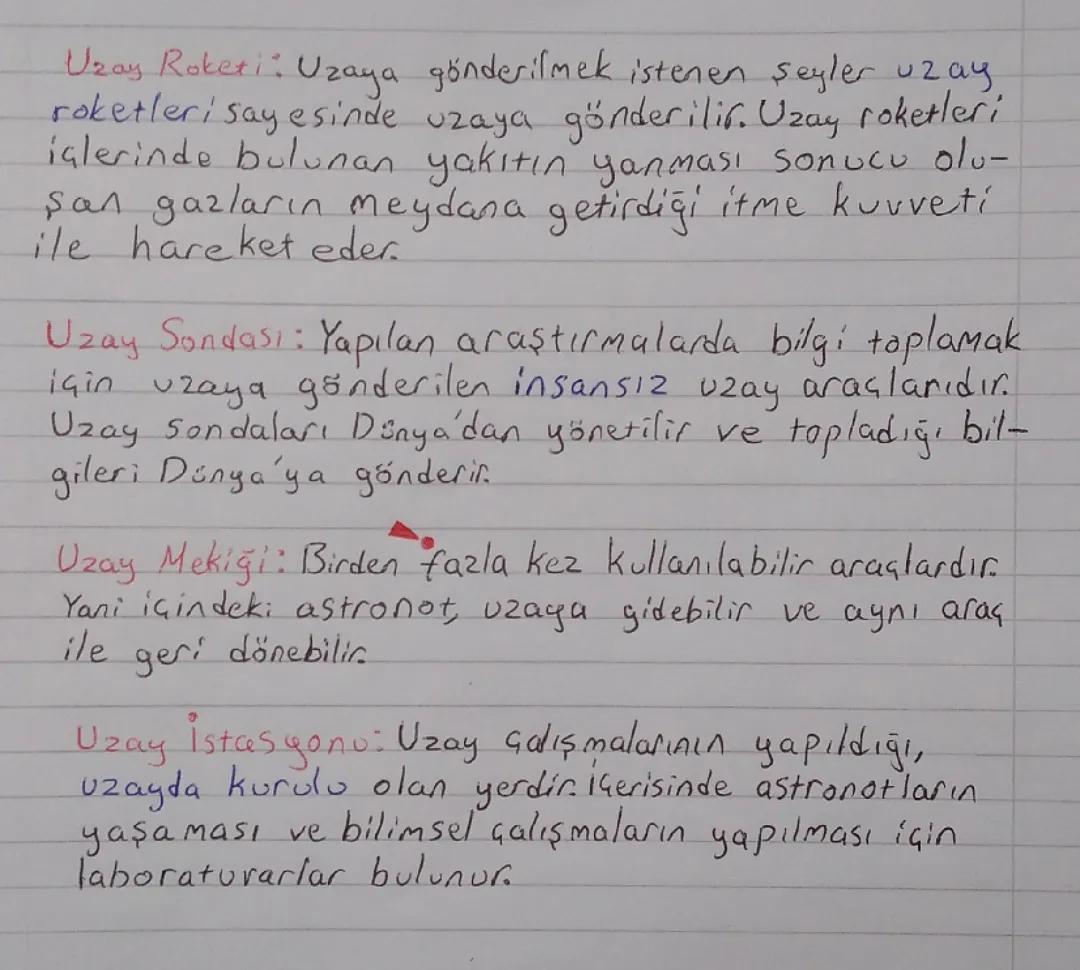 Uzay Roketi: Uzaya gönderilmek istenen şeyler uzay
roketleri sayesinde uzaya gönderilir. Uzay roketleri
içlerinde bulunan yakıtın yanması sonucu olu-
şan gazların meydana getirdiği itme kuvveti
ile hareket eder.
Uzay Sondası: Yapılan araştırmalarda bilgi toplamak
için uzaya gönderilen insansız uzay araçlarıdır.
Uzay sondaları Dünya'dan yönetilir ve topladığı bil-
gileri Dünya'ya gönderir.
Uzay Mekiği: Birden fazla kez kullanılabilir araçlardır.
Yani içindeki astronot, uzaya gidebilir ve aynı araç
ile geri dönebilir.
Uzay İstasyonu: Uzay çalışmalarının yapıldığı,
uzayda kurulu olan yerdir. İçerisinde astronotların
yaşaması ve bilimsel çalışmaların yapılması için
laboraturarlar bulunur.